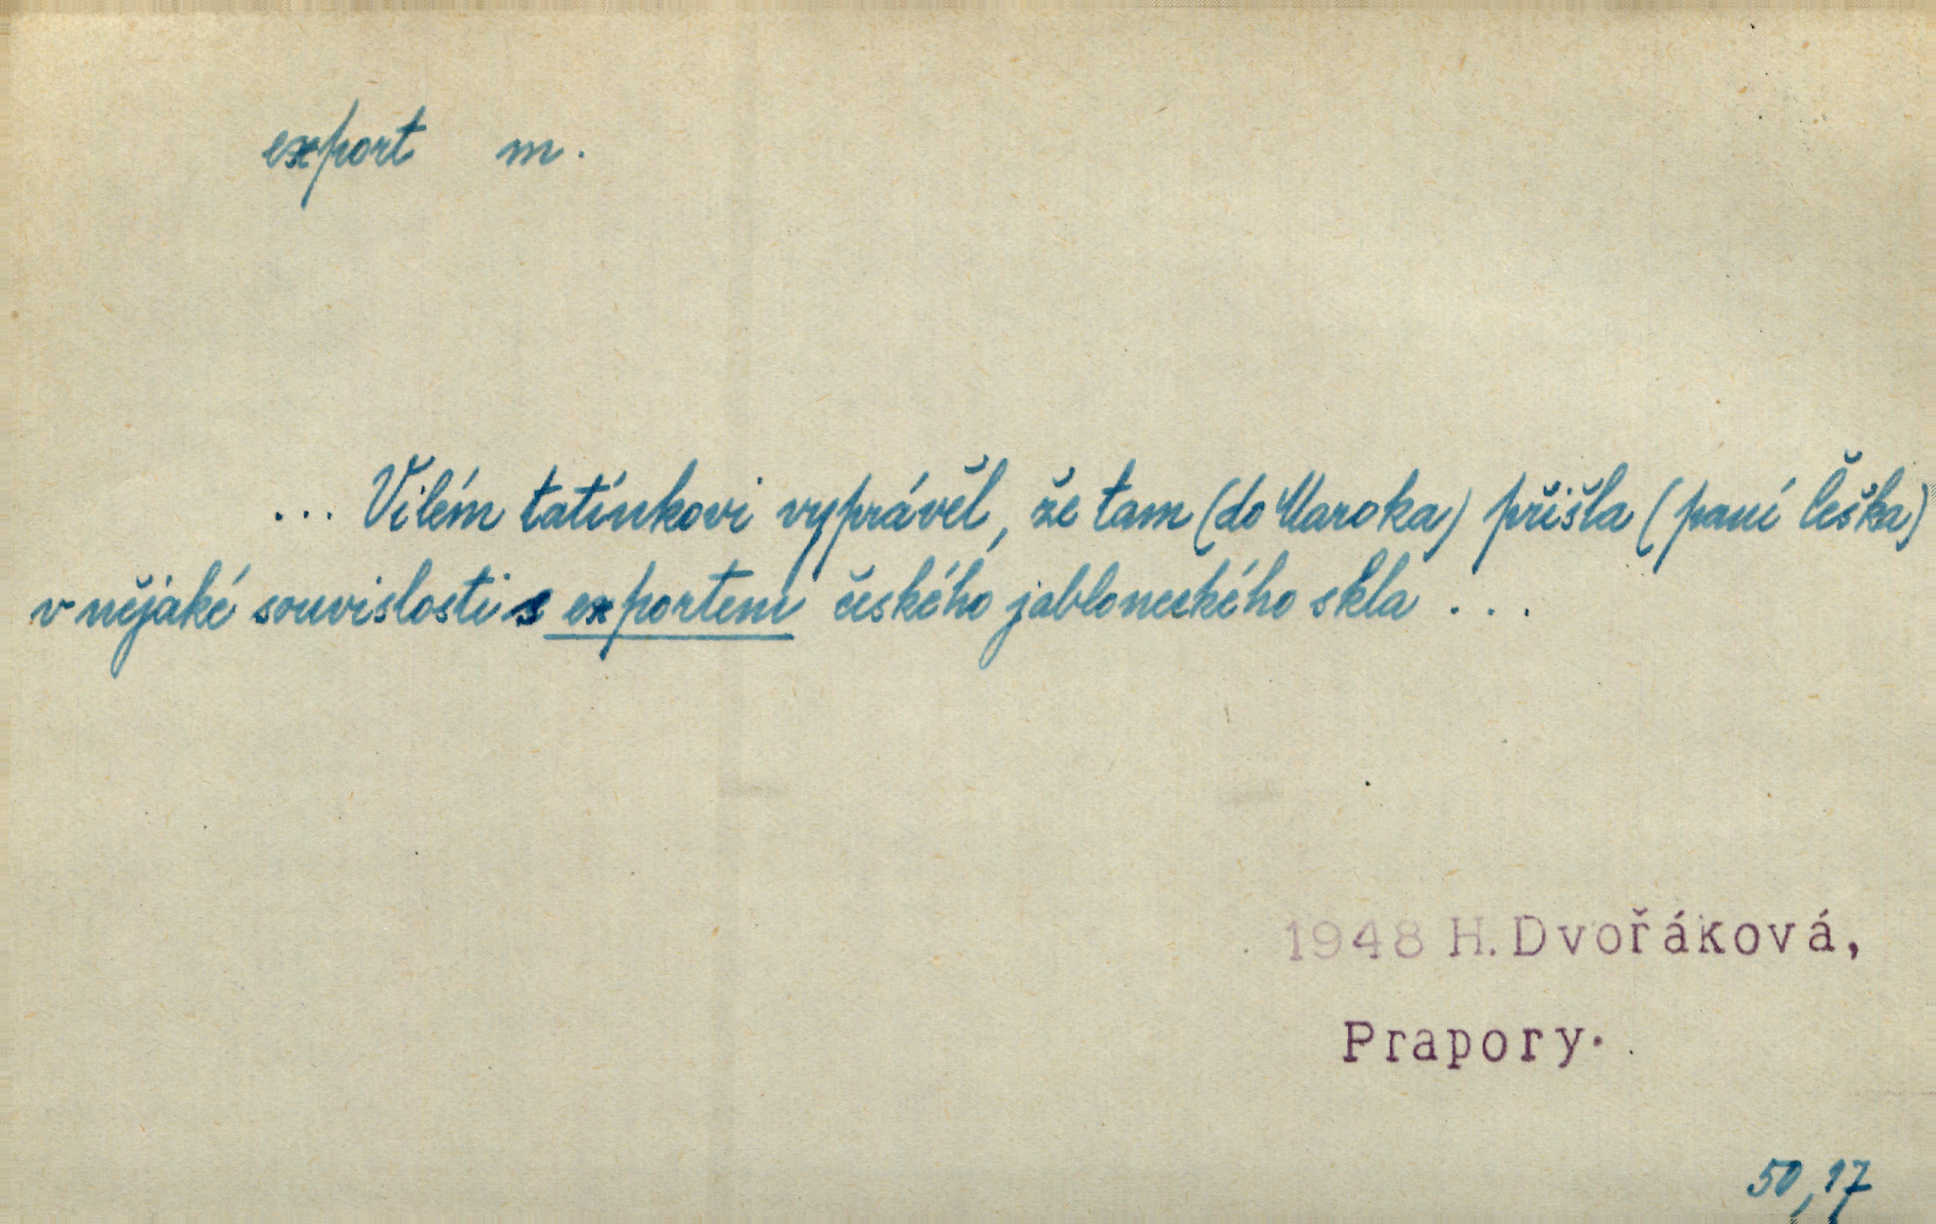 export m.
... Vilém tatínkovi vyprávěl, že tam (do Maroka) přišla (paní Češka)
v nějaké souvislosti s exportem českého jabloneckého skla ...
1948 H. Dvořáková,
Prapory.
50,17